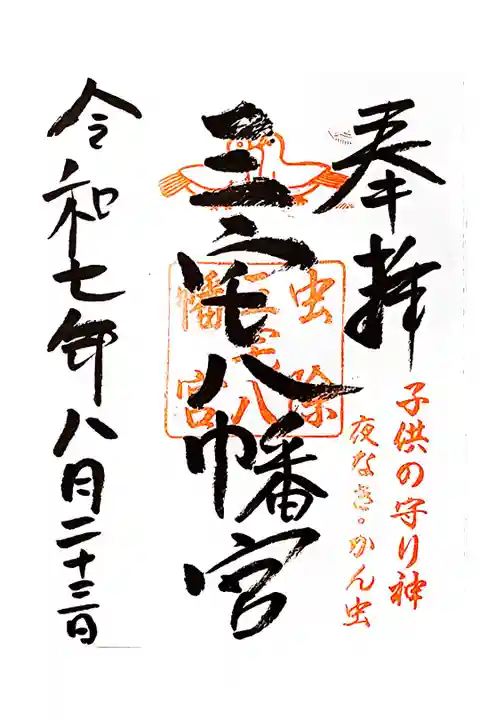 奉拝
子供の守り神
夜なき・かん虫
三宅八幡宮
虫除
三宅八
幡宮
令和七年八月二十三日